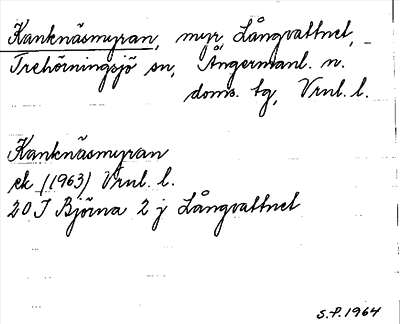 Kanknäsmyran, myr, Långvattnet,
Trehörningsjö sn, Ångermanl. n.
doms. tg, Vrnl. l.
Kanknäsmyran
ek (1963) Vrnl. l.
20 J Björna 2 j Långvattnet
S.P. 1964